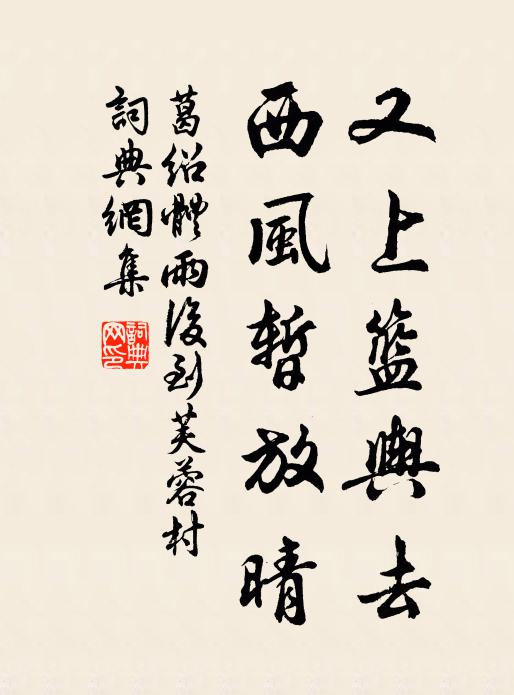 又上籃輿去
西風暫放晴
葛紹體雨後到芙蓉村
詞典網集
詞典
网印